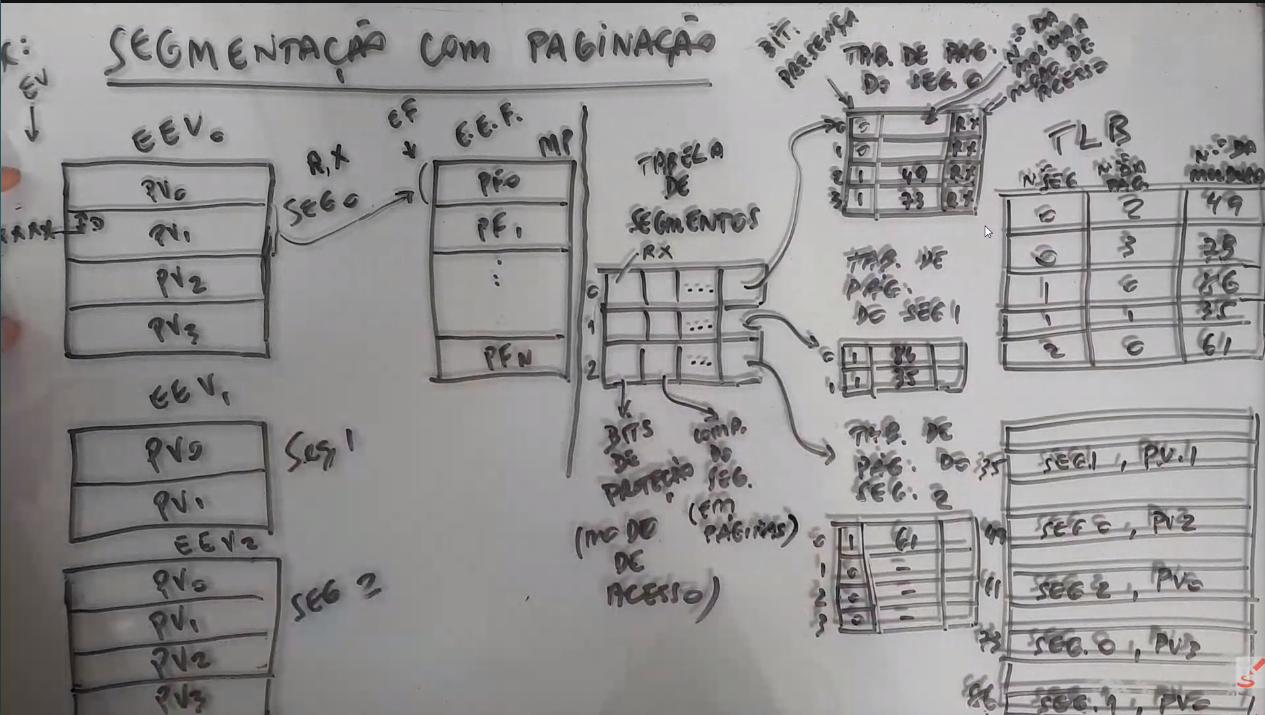 SEGMENTAÇÃO COM PAGINAÇÃO
EV
EEV0
PV0
PV1
PV2
PV3
R,X
SEG 0
EEV1
PV0
PV1
SEG 1
EEV2
PV0
PV1
PV2
PV3
SEG 2
EF
E.E.F.
MP
PF0
PF1
PFN
TABELA
DE
SEGMENTOS
RX
0
1
2
BITS
DE
PROTEÇÃO
(MODO
DE
ACESSO)
COMP.
DO
SEG.
(EM
PÁGINAS)
BIT.
PRESENÇA
TAB. DE PÁG.
DO SEG. 0
Nº DA
MOLDURA
MODO DE
ACESSO
0 0 RX
1 0 RX
2 1 49 RX
3 1 73 RX
TAB. DE
PÁG.
DE SEG 1
0 1 86
1 1 35
TAB. DE
PÁG. DO
SEG. 2
0 1 61
1 0 -
2 0 -
3 0 -
TLB
Nº SEG Nº DA PÁG. Nº DA MOLDURA
0 2 49
0 3
1 0 86
1 1 35
2 0 61
35 SEG.1, PV.1
49 SEG 0, PV2
61 SEG 2, PV0
73 SEG. 0, PV3
86 SEG. 1, PV0